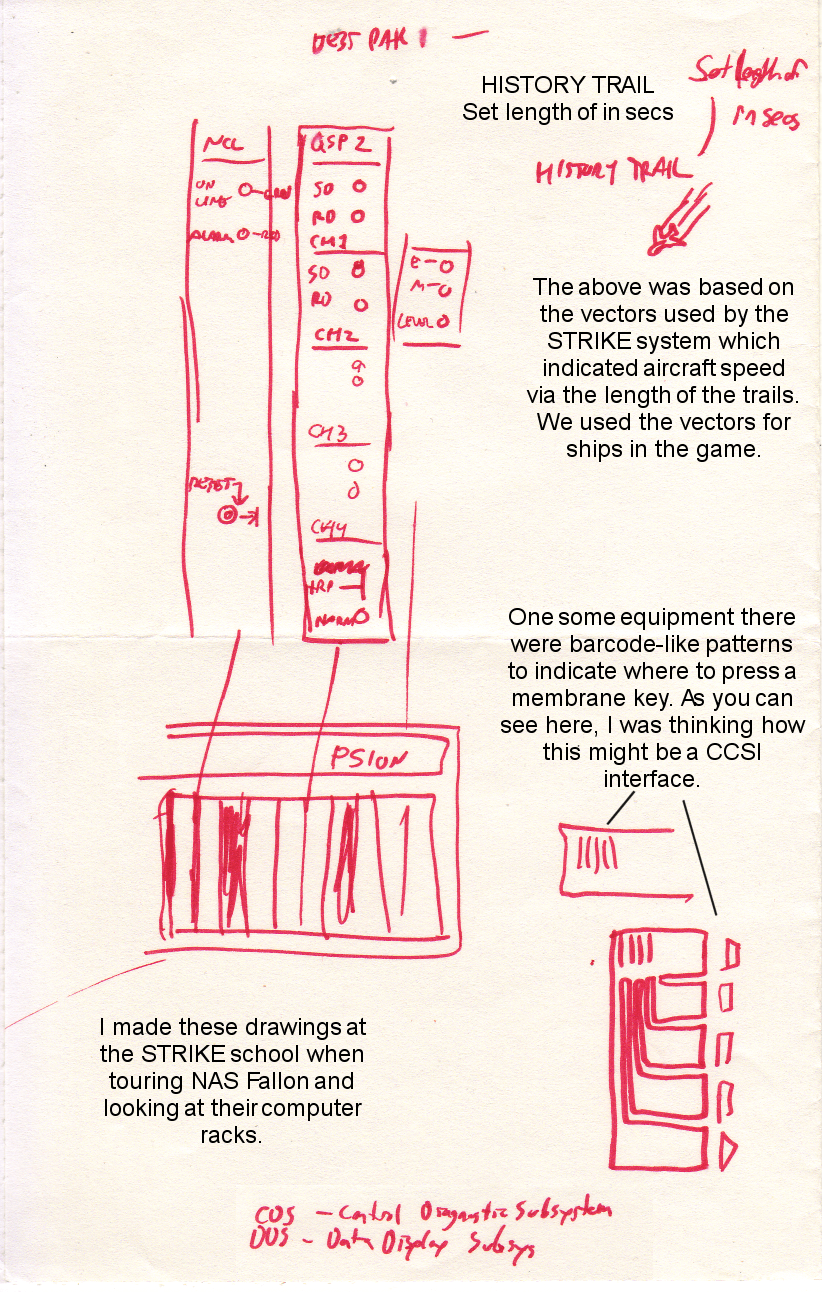 HISTORY TRAIL
Set length of in secs
Set length of
in secs
HISTORY TRAIL
NCL
ON
LINE
ALARM
RESET
QSP 2
SD
RD
CH1
SD
RD
CH2
CH3
CH4
NORM
E
M
LEVEL
The above was based on
the vectors used by the
STRIKE system which
indicated aircraft speed
via the length of the trails.
We used the vectors for
ships in the game.
One some equipment there
were barcode-like patterns
to indicate where to press a
membrane key. As you can
see here, I was thinking how
this might be a CCSI
interface.
PSION
I made these drawings at
the STRIKE school when
touring NAS Fallon and
looking at their computer
racks.
CDS - Control Diagnostic Subsystem
DDS - Data Display Subsys